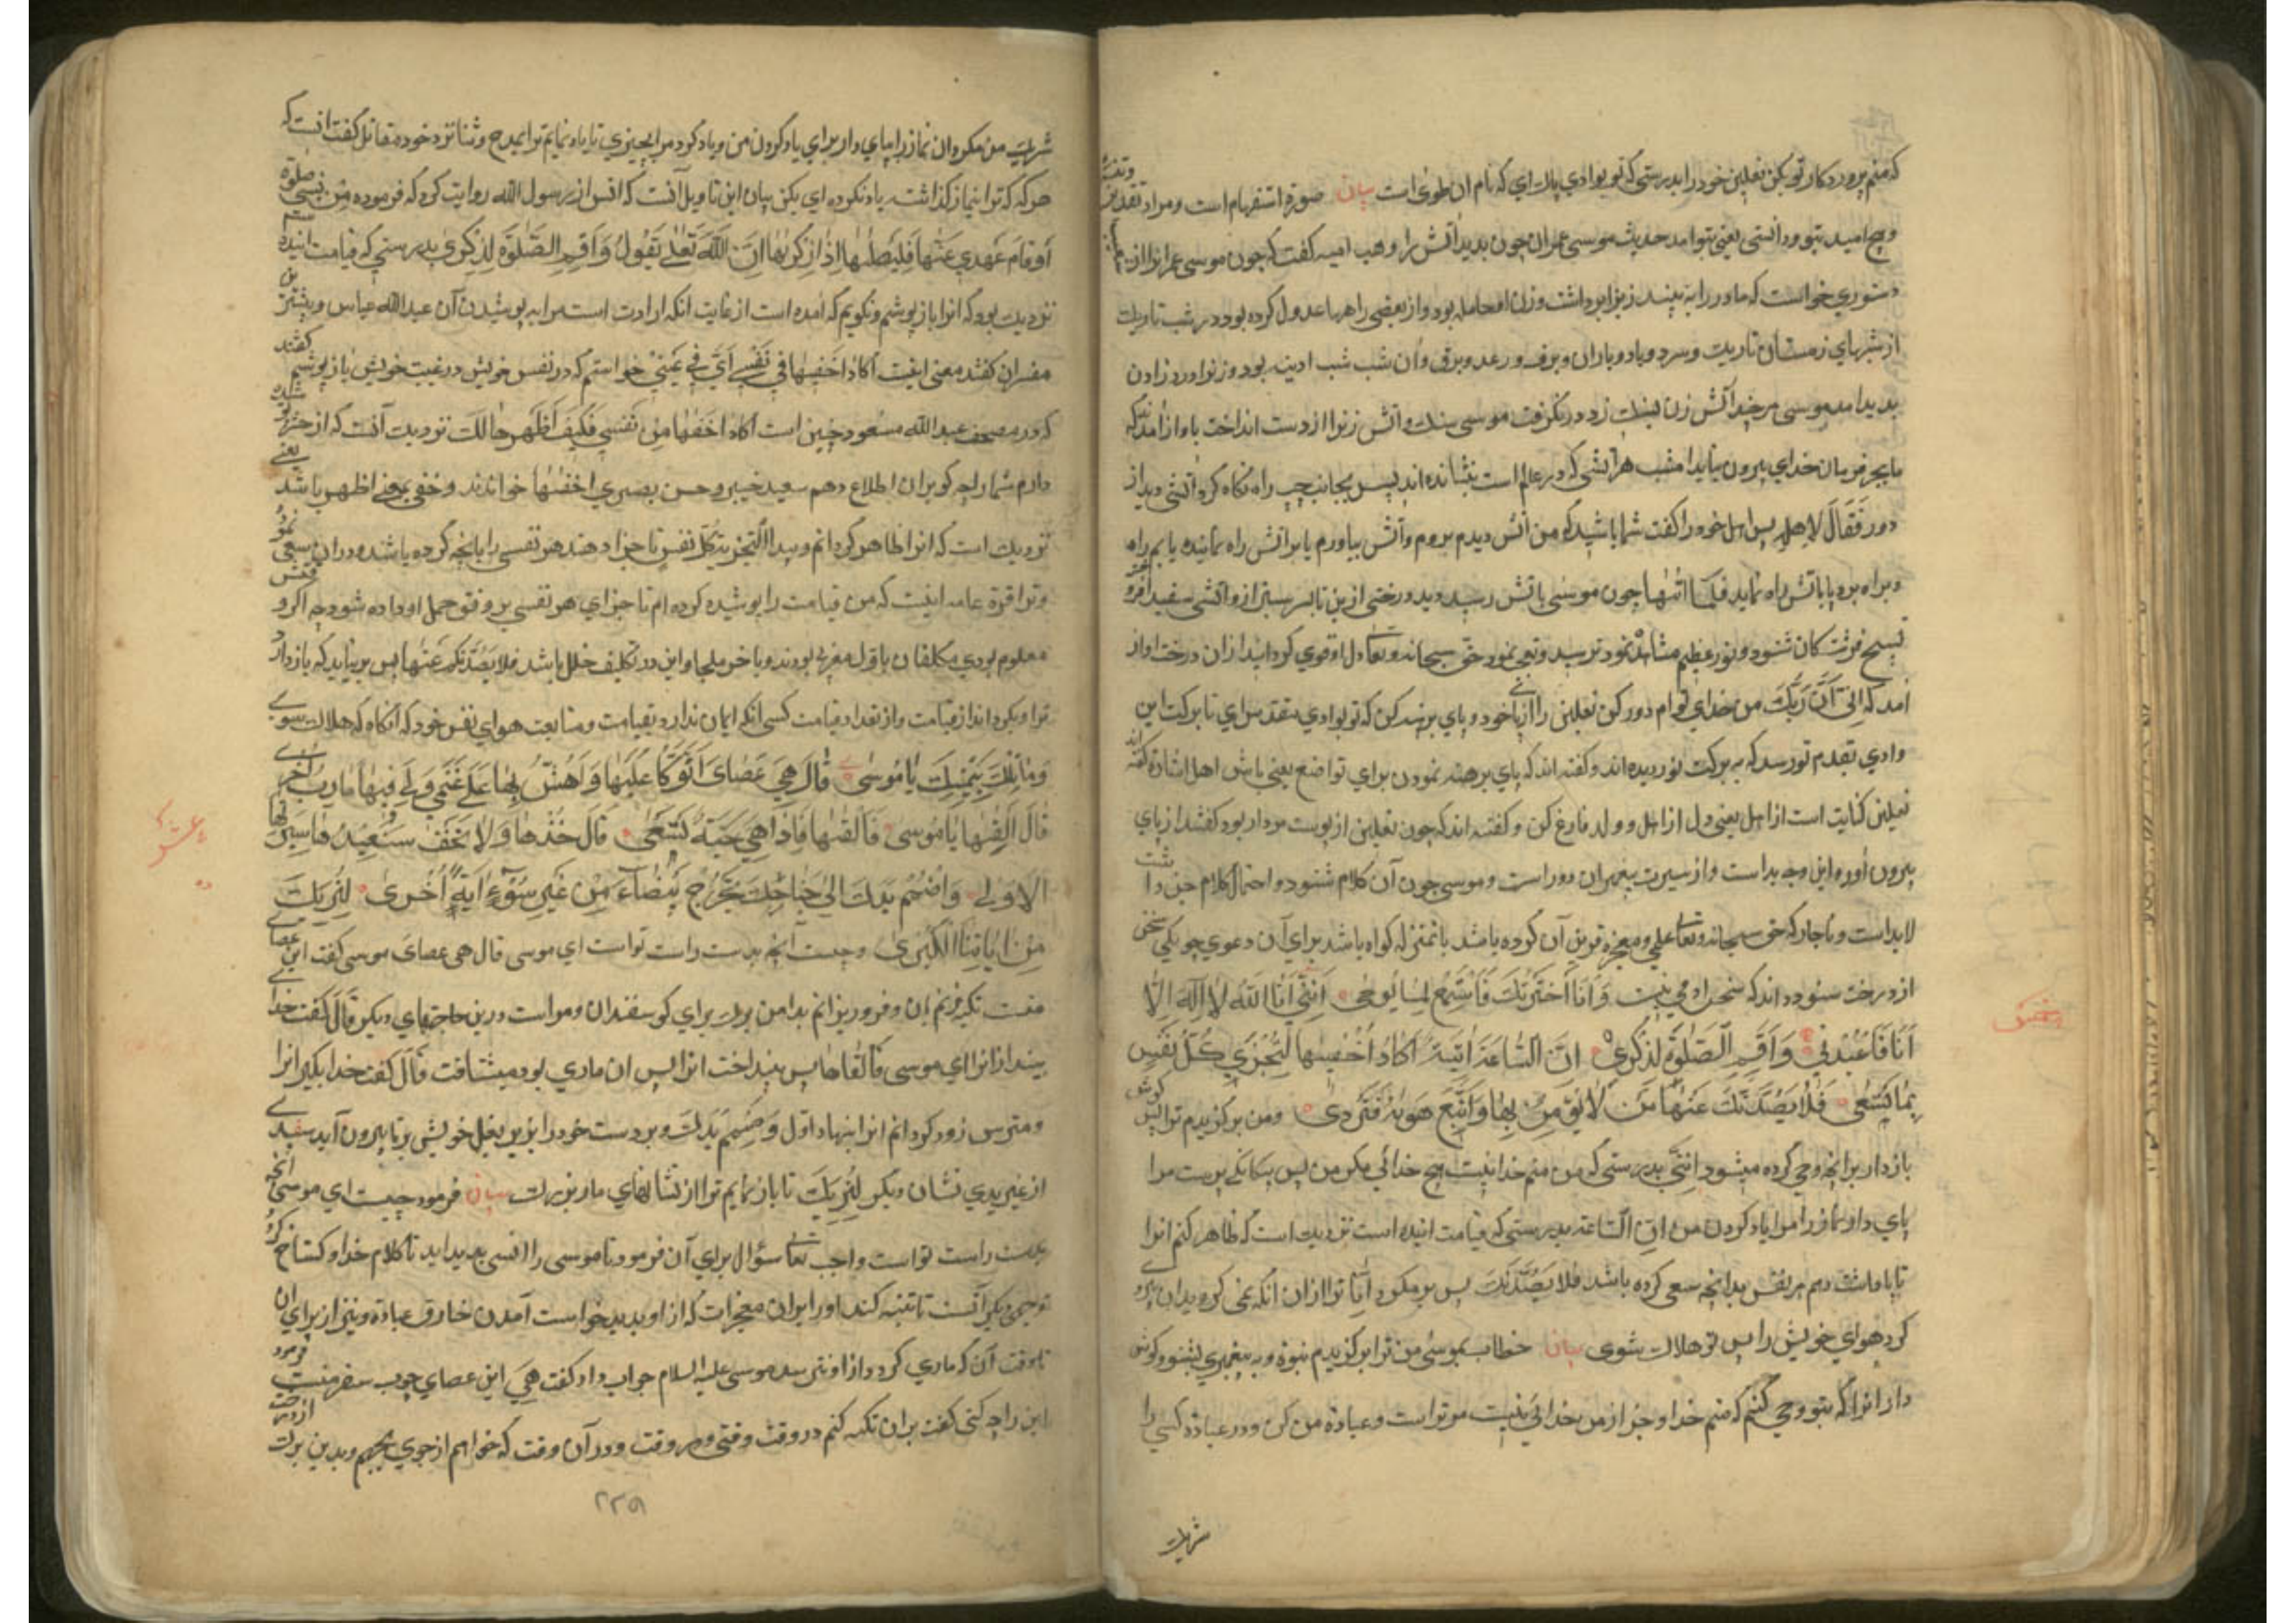 که منم پروردکار تو بکن نعلین خود را بدرستی که تو بوادي پاك اي که نام ان طوی است بیان صورة استفهام است ومراد
وحي امید بتو ودانستی یعنی بتو امد حدیث موسی عمران چون بدید آتش را وهب امیه گفت که چون موسی عمران از
دستوري خواست که مادر را به بیند زنرا برداشت وزن او حامله بود واز بعضی راهها عدول کرده بود در شب تاریك
از شبهاي زمستان تاریك وسرد وباد وباران وبرف ورعد وبرق وان شب شب ادینه بود وزنرا درد زادن
بدید امد موسی هر چند آتش زنه بسنك زد در نکرفت موسی سنك وآتش زنرا از دست انداخت باواز امد که
ما بجز فرمان خداي بیرون نیاید امشب هر آتشی که در عالم است بنشانده اند پس بجانب چپ راه نکاه کرد آتشی دید از
دور فَقَالَ لاِهلِهِ پس اهل خود را کفت شما باشید که من آتش دیدم بروم وآتش بیاورم یا بر آتش راه نماینده یابم
وبراه برد یا باتش راه نماید فلَمّا اتٰیها چون موسی باتش رسید دید درختی از بن تا بسر سبز از و آتشی سفید
تسبیح فرشتکان شنود ونور عظیم مشاهده نمود بترسید وتعجب نمود حق سبحانه وتعالی دل او قوي کردانید از ان درخت اواز
امد که اِنّي اَنَا رَبُّكَ من خداي توام دور کن نعلین را از پا خود وپاي برهنه کن که تو بوادي مقدس اي تا برکت این
وادي بقدم تو رسد که به برکت نوردیده اند وکفته اند که پاي برهنه نمودن براي تواضع یعنی باش اهل اشارة کفته اند
نعلین کنایت است از اهل یعنی دل از اهل وولد فارغ کن وکفته اند که چون نعلین از پوست مردار بود کفتند از پاي
بیرون آور واین وجه بد است واز سیرت پیغمبران دور است وموسی چون آن کلام شنود واحتمال کلام جن داشت
لابد است وناچار که حق سبحانه وتعالی علمي ومعجزه قرین آن کرده باشد بانمنزله که کواه باشد براي آن دعوي چو یکی سخن
از درخت شنود داند که سخن ادمي نیست وَاَنَا اخْتَرْتُكَ فَاسْتَمِعْ لِمَا یُوحٰی اِنَّنِي اَنَا اللّٰهُ لَا اِلٰهَ اِلَّا
اَنَا فَاعْبُدْنِي وَاَقِمِ الصَّلٰوةَ لِذِکْرِي اِنَّ السَّاعَةَ اٰتِیَةٌ اَکَادُ اُخْفِیهَا لِتُجْزٰی کُلُّ نَفْسٍ
بِمَا تَسْعٰی فَلَا یَصُدَّنَّكَ عَنْهَا مَنْ لَا یُؤْمِنُ بِهَا وَاتَّبَعَ هَوٰیهُ فَتَرْدٰی ومن برکزیدم ترا پس کوش
بازدار برانچه وحي کرده میشود اِنَّنِي بدرستی که من منم خدا نیست هیچ خدائي مکر من پس بیکانکي پرست مرا
پاي دار نماز را مرا یاد کردن من اِنّ السَّاعَةَ بدرستی که قیامت اینده است نزدیك است که ظاهر کنم انرا
تا پاداشت دهم هر نفس بدانچه سعی کرده باشد فلا یَصُدَّنَّكَ پس بر مکرداناد ترا از ان انکه نمی کرود بدان
کرد هواي خویش را پس تو هلاك شوی بیان خطاب بموسی من ترا برکزیدم بنبوة وبه پیغمبري بشنو وکوش
دار انرا که بتو وحي کنم که منم خدا وجز از من خدائی نیست مر تراست وعبادة من کن ودر عبادة کسي را
شریك
شریك من مکردان نماز را بپاي دار براي یاد کردن من ویاد کرد مرا بچیزي تا یاد نمایم ترا بمدح وثنا نزد خود ومقاتل کفت آنست که
هر که که ترا نماز کذاشت یاد نکرده اي بکن بیان این تاویل آنست که انس از رسول الله روایت کرد که فرموده مَن نَسِيَ صلوة
اَو نَامَ عَنهَا فَلیُصَلِّهَا اِذَا ذَکَرَهَا اِنَّ اللّٰهَ تَعٰلی یَقُولُ وَاَقِمِ الصَّلٰوةَ لِذِکْرِي بدرستي که قیامت اینده
نزدیك بود که انرا باز پوشم ونکویم که امده است از غایت انکه ارادت است مرا به پوشیدن آن عبدالله عباس وبیشتر
مفسران کفتند معنی اینست اَکَادُ اُخفِیهَا فی نَفسِي اَيّ في غَیبي خواستم که در نفس خویش در غیب خویش باز پوشم کفتند
که در مصحف عبدالله مسعود چنین است اَکَادُ اُخفِیهَا مِن نَفسِي فَکَیفَ اُظهِرُهَا لَكَ نزدیك آنست که از خود
دارم شما را چه کو بران اطلاع دهم سعید جبیر وحسن بصري اَخفِیهَا خواندند وخفی بمعنی اظهر باشد یعنی
نزدیك است که انرا ظاهر کردانم وپیدا لِتُجزٰی کُلُّ نَفسٍ تا جزا دهند هر نفسی را بانچه کرده باشند دران سعی نمود
وبر قراءة عامه اینست که من قیامت را پوشیده کرده ام تا جزاي هر نفسی بر وفق عمل او داده شود چه اکر
معلوم بودي مکلفان باول مغري بودند وباخر ملجا واین در تکلیف خلل باشد فلا یَصُدَّنَّكَ عَنهَا پس بر نیاید که باز دارد
ترا وبکرداند از قیامت واز تعداد قیامت کسی انکه ایمان ندارد بقیامت ومتابعت هواي نفس خود که آنکاه که هلاك شوي
وَمَا تِلْكَ بِیَمِینِكَ یَا مُوسٰی قَالَ هِيَ عَصَايَ اَتَوَکَّؤُا عَلَیْهَا وَاَهُشُّ بِهَا عَلٰی غَنَمِي وَلِيَ فِیهَا مَاٰرِبُ اُخْرٰی
قَالَ اَلْقِهَا یَا مُوسٰی فَاَلْقٰیهَا فَاِذَا هِيَ حَیَّةٌ تَسْعٰی قَالَ خُذْهَا وَلَا تَخَفْ سَنُعِیدُهَا سِیرَتَهَا
الْاُولٰی وَاضْمُمْ یَدَكَ اِلٰی جَنَاحِكَ تَخْرُجْ بَیْضَاءَ مِنْ غَیْرِ سُوءٍ اٰیَةً اُخْرٰی لِنُرِیَكَ
مِنْ اٰیَاتِنَا الْکُبْرٰی وچیست آنچه بدست راست تو است اي موسی قال هی عصايَ موسی کفت این عصاي
منست تکیه زنم بان وفرو ریزانم بدا من برك براي کوسفندان ومراست درین حاجتهاي دیکر قَالَ کفت خدا
بینداز انرا اي موسی فَاَلقَاهَا پس بینداخت انرا پس ان ماري بود میشتافت قَالَ کفت خدا بکیر انرا
ومترس زود کردانم انرا بنهاد اول وَاضمُم یَدَكَ وبر دست خود را بزیر بغل خویش بر تا بیرون آید سفید
از غیر بدي نشان دیکر لِنُرِیَكَ تا باز نمایم ترا از نشانهاي ما بزرك بیان فرمود چیست اي موسی انچه
بدست راست تو است واجب تعالی سؤال براي آن فرمود تا موسی را انسی بدید اید تا کلام خدا وکستاخ کردد
توجیهي دیکر آنست تا تنبیه کند او را بران معجزات که از او پدید خواست آمدن خارق عبادة ونیز از براي ان
تا وقت آن که ماري کردد از او نترسد موسی علیه السلام جواب داد کفت هِيَ این عصاي چوب سفر منست فرمود
این را چه کنی کفت بران تکیه کنم در وقت وقتی وهر وقت ودر آن وقت که خواهم از جوي بجهم وبدین برك از درخت
۲۲۵